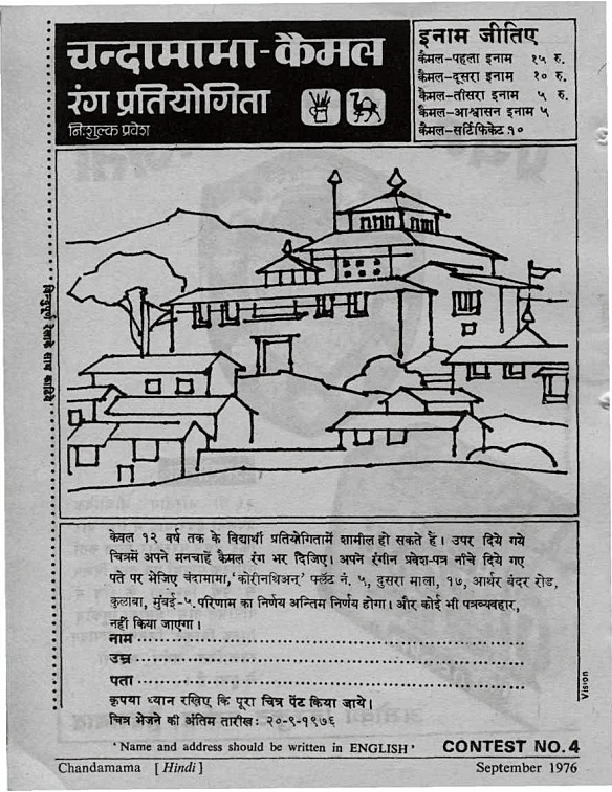 चन्दामामा-कैमल
रंग प्रतियोगिता
निःशुल्क प्रवेश
इनाम जीतिए
कैमल-पहला इनाम १५ रु.
कैमल-दूसरा इनाम १० रु.
कैमल-तीसरा इनाम ५ रु.
कैमल-आश्वासन इनाम ५
कैमल-सर्टिफिकेट १०
बिन्दुपूर्ण रेखाके साथ काटिये
केवल १२ वर्ष तक के विद्यार्थी प्रतियोगितामें शामील हो सकते हैं। उपर दिये गये
चित्रमें अपने मनचाहें कैमल रंग भर दिजिए। अपने रंगीन प्रवेश-पत्र नीचे दिये गए
पते पर भेजिए चंदामामा,'कोरीनथिअन्' फ्लॅट नं. ५, दुसरा माला, १७, आर्थर बंदर रोड,
कुलाबा, मुंबई-५. परिणाम का निर्णय अन्तिम निर्णय होगा। और कोई भी पत्रव्यवहार,
नहीं किया जाएगा।
नाम
उम्र
पता
कृपया ध्यान रखिए कि पूरा चित्र पेंट किया जाये।
चित्र भेजने की अंतिम तारीख: २०-९-१९७६
'Name and address should be written in ENGLISH'
CONTEST NO.4
Vision
Chandamama [Hindi]
September 1976